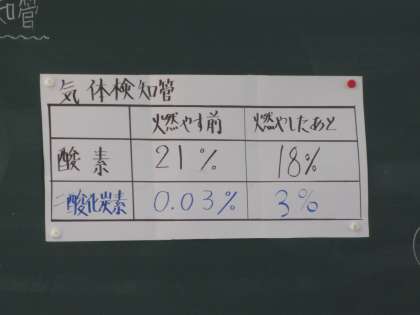 知管
気体検知管
燃やす前 燃やしたあと
酸素 21% 18%
二酸化炭素 0.03% 3%